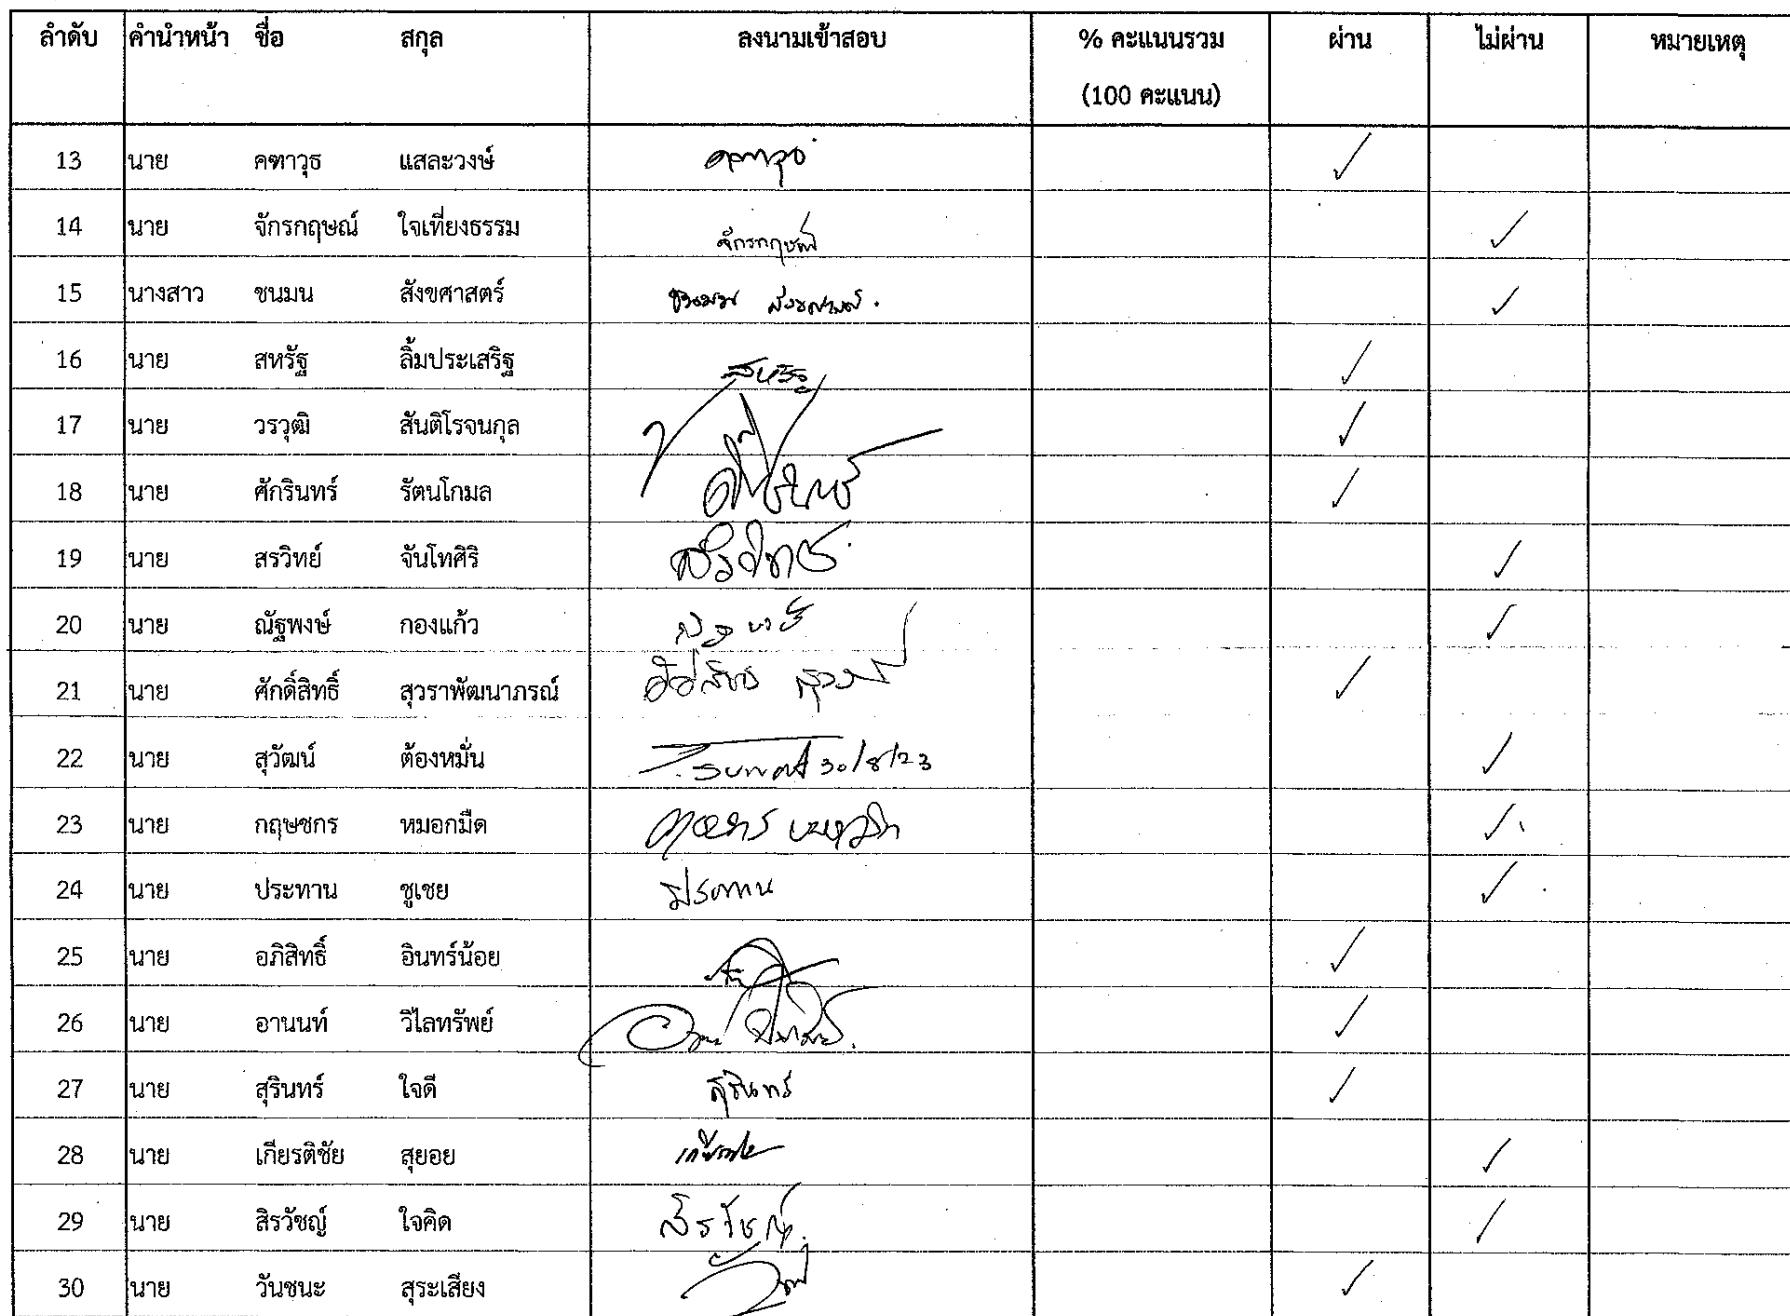 ลำดับ คำนำหน้า ชื่อ สกุล ลงนามเข้าสอบ % คะแนนรวม ผ่าน ไม่ผ่าน หมายเหตุ
(100 คะแนน)
13 นาย คฑาวุธ แสละวงษ์ คฑาวุธ ✓
14 นาย จักรกฤษณ์ ใจเที่ยงธรรม จักรกฤษณ์ ✓
15 นางสาว ชนมน สังขศาสตร์ ชนมน สังขศาสตร์ ✓
16 นาย สหรัฐ ลิ้มประเสริฐ สหรัฐ ✓
17 นาย วรวุฒิ สันติโรจนกุล ✓
18 นาย ศักรินทร์ รัตนโกมล ศักรินทร์ ✓
19 นาย สรวิทย์ จันโทศิริ สรวิทย์ ✓
20 นาย ณัฐพงษ์ กองแก้ว ณัฐพงษ์ ✓
21 นาย ศักดิ์สิทธิ์ สุวราพัฒนาภรณ์ ✓
22 นาย สุวัฒน์ ต้องหมั่น 30/8/23 ✓
23 นาย กฤษชกร หมอกมืด ✓
24 นาย ประทาน ชูเชย ประทาน ✓
25 นาย อภิสิทธิ์ อินทร์น้อย ✓
26 นาย อานนท์ วิไลทรัพย์ ✓
27 นาย สุรินทร์ ใจดี สุรินทร์ ✓
28 นาย เกียรติชัย สุยอย ✓
29 นาย สิรวัชญ์ ใจคิด สิรวัชญ์ ✓
30 นาย วันชนะ สุระเสียง ✓